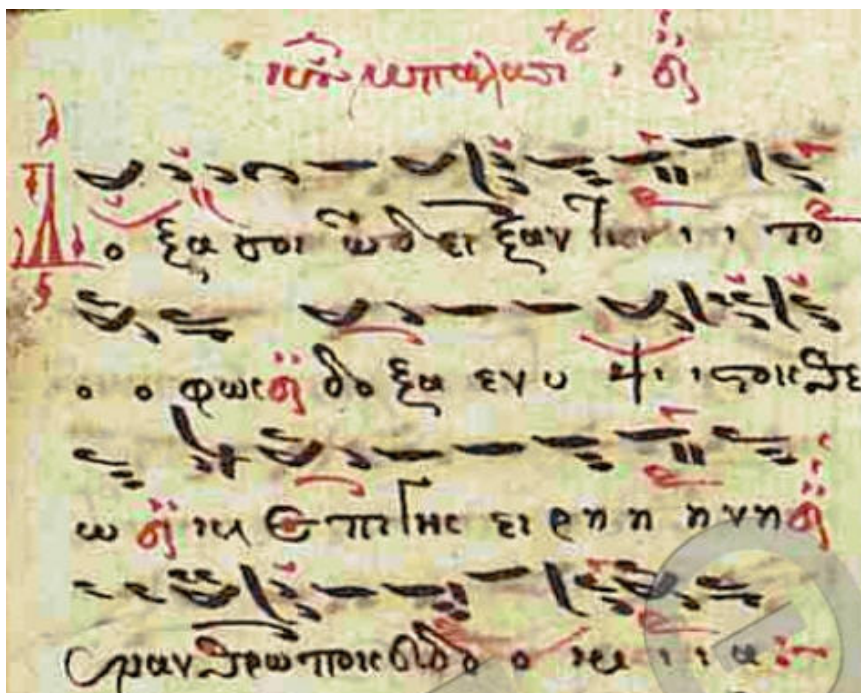 Δο ξα σοι τω δει ξαν τι ι ι το
ο ο φως δο ξα εν υ ψι ι ι στοις θε
ω και ε πι γης ει ρη η η νη
εν αν θρω ποις ευ δο ο ο κι ι ι α